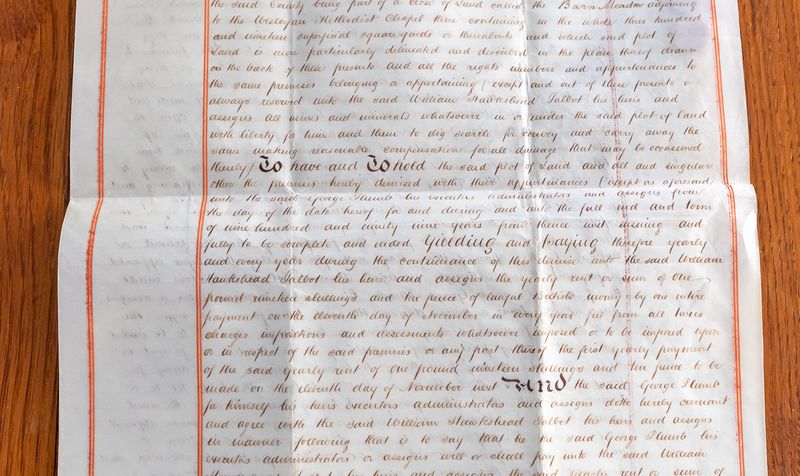 the said County being part of a close of Land called the Barn Meadow adjoining
to the Wesleyan Methodist Chapel there containing in the whole three hundred
and nineteen superficial square yards or thereabouts and which said plot of
Land is more particularly delineated and described in the plan thereof drawn
on the back of these presents and all the rights members and appurtenances to
the same premises belonging or appertaining (except and out of these presents
always reserved unto the said William Hawkshead Talbot his heirs and
assigns All mines and minerals whatsoever in or under the said plot of land
with liberty for him and them to dig search for convey and carry away the
same making reasonable compensation for all damage that may be occasioned
thereby) To have and To hold the said plot of Land and all and singular
other the premises hereby demised with their appurtenances (except as aforesaid
unto the said George Plumb his executors administrators and assigns from
the day of the date hereof for and during and unto the full end and term
of nine hundred and ninety nine years from thence next ensuing and
fully to be complete and ended Yielding and paying therefore yearly
and every year during the continuance of this demise unto the said William
Hawkshead Talbot his heirs and assigns the yearly rent or sum of one
pound nineteen shillings and ten pence of lawful British money by one entire
payment on the eleventh day of November in every year free from all taxes
charges impositions and assessments whatsoever imposed or to be imposed upon
or in respect of the said premises or any part thereof the first yearly payment
of the said yearly rent of one pound nineteen shillings and ten pence to be
made on the eleventh day of November next And the said George Plumb
for himself his heirs executors administrators and assigns doth hereby covenant
and agree with the said William Hawkshead Talbot his heirs and assigns
in manner following that is to say that he the said George Plumb his
executors administrators or assigns will or shall pay unto the said William
his heirs and assigns the said yearly rent or sum of